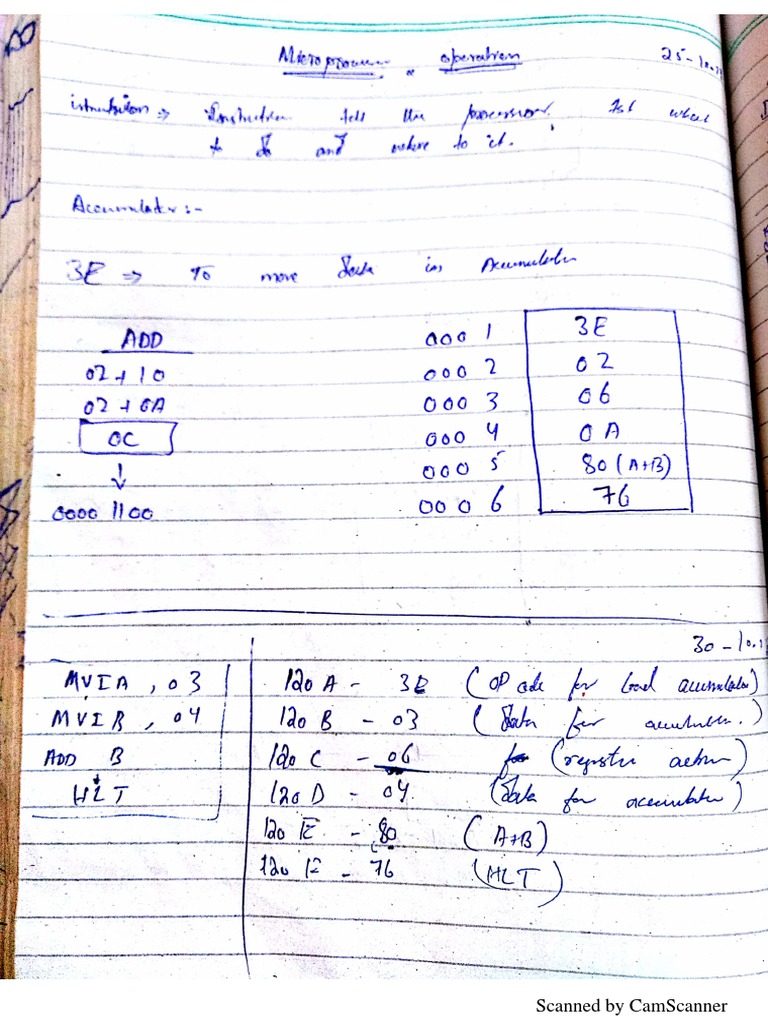 Microprocessor operation 25-10.
instruction => Instruction tell the processor. what
to do and where to it.
Accumulator :-
3E => To move data in Accumulator
ADD
02 + 10
02 + 0A
0C
↓
0000 1100
0001 3E
0002 02
0003 06
0004 0A
0005 80 (A+B)
0006 76
30-10.
MVIA , 03
MVIB , 04
ADD B
HLT
120A - 3E (OP code for load accumulator)
120B - 03 (Data for accumulator.)
120C - 06 (register)
120D - 04 (Data for accumulator)
120E - 80 (A+B)
120F - 76 (HLT)
Scanned by CamScanner